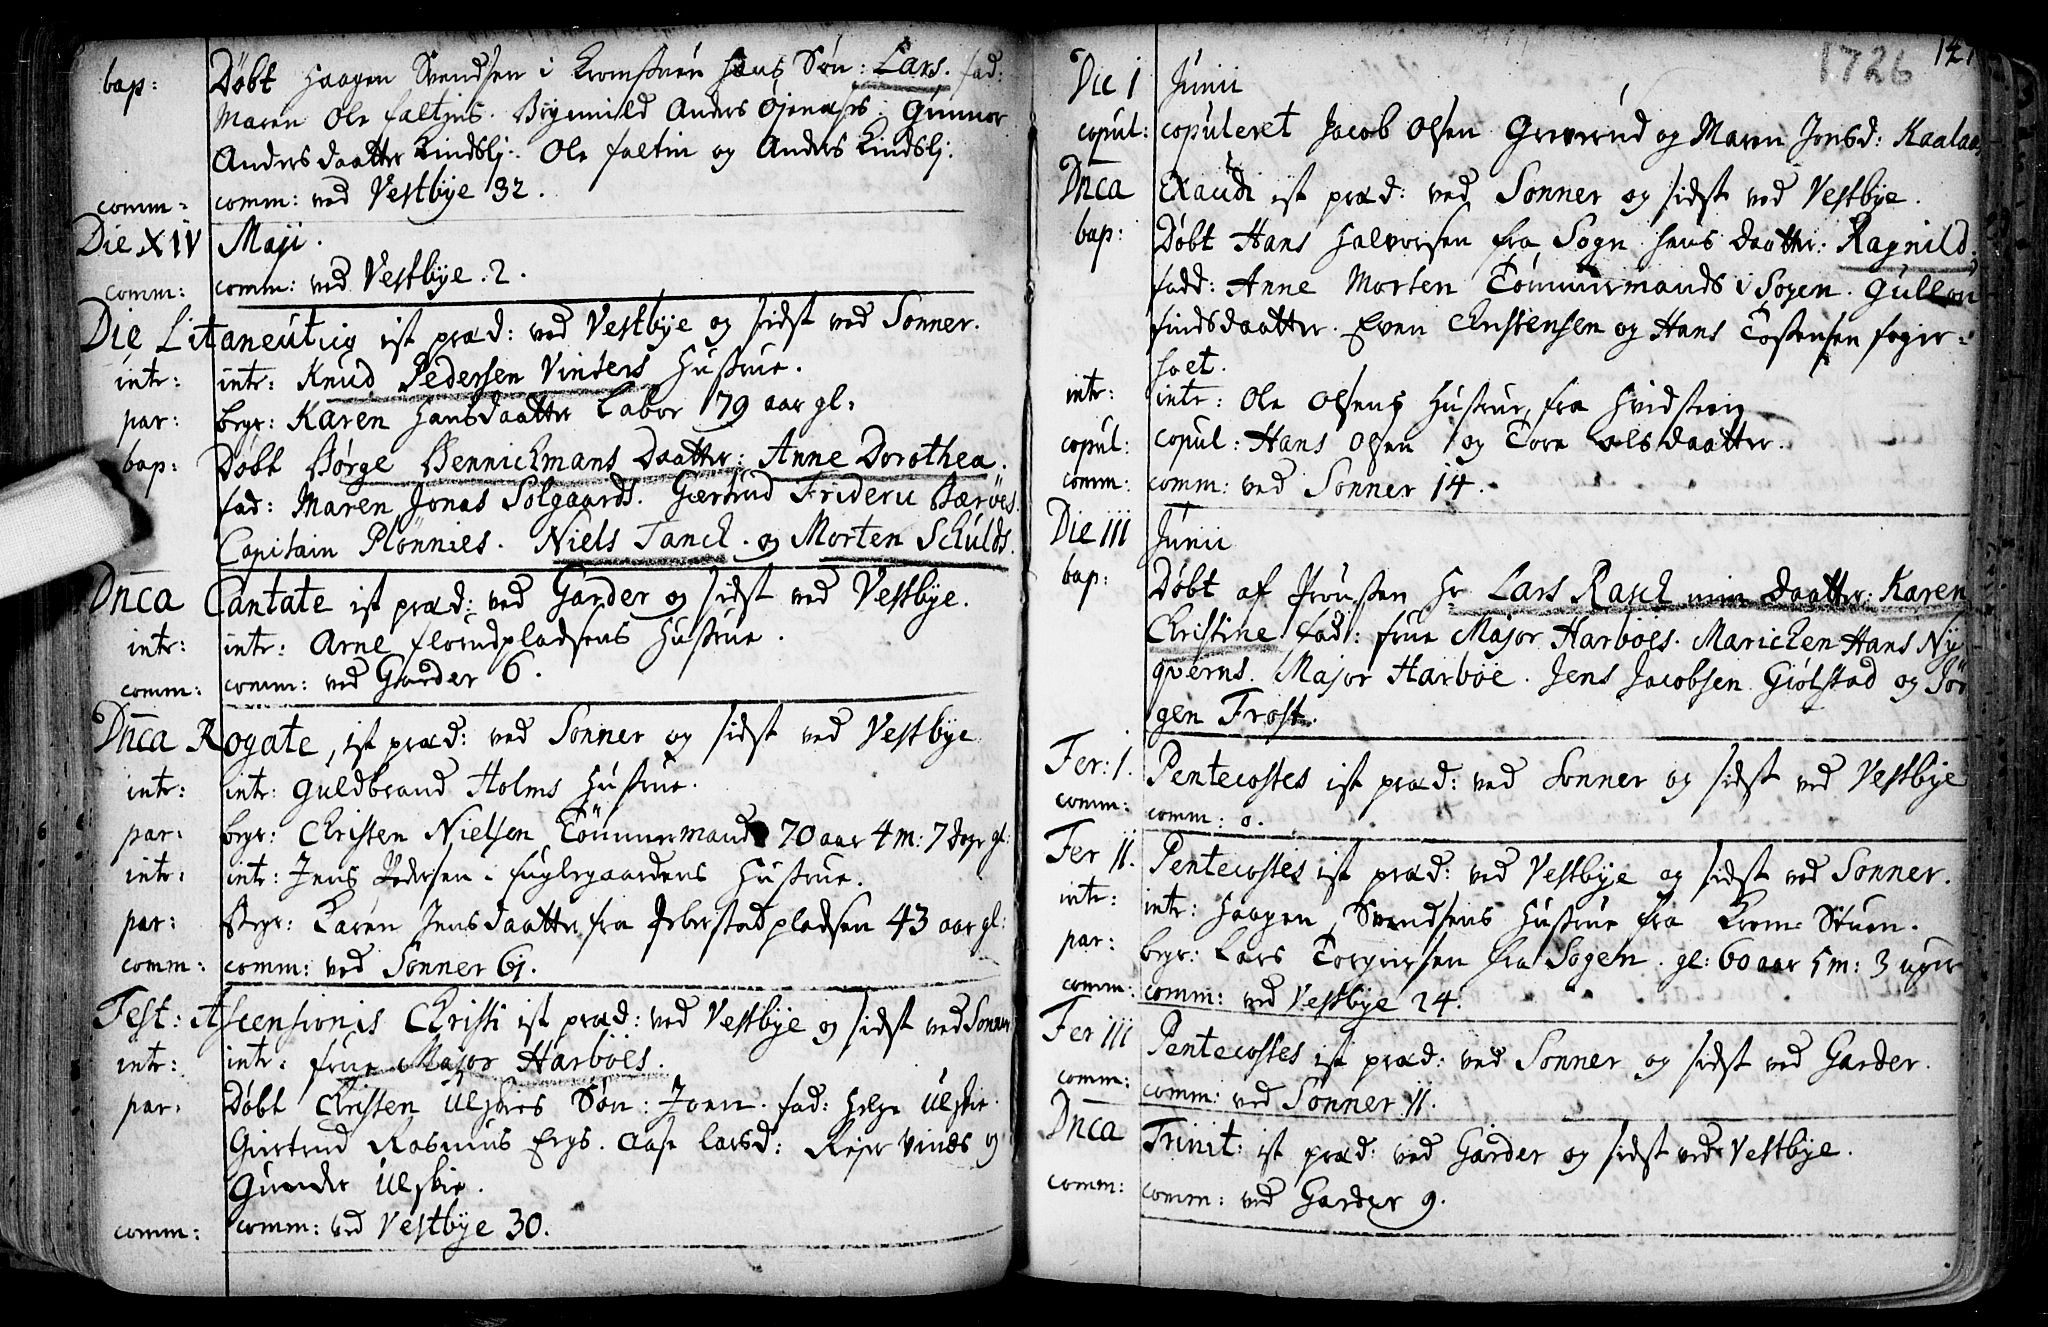 bap: Døbt Haagen Svendsen i Kromstuen hans Søn: Lars. fad:
Maren Ole Faltins. Brynnild Anders Gunnor
Anders daatter Lindsli. Ole Faltin og Anders Lindsli.
comm: comm: ved Vestbÿe 32.
Die XIV Maji.
comm: comm: ved Vestbÿe. 2.
Die Litaneutig ist præd: ved Vestbÿe og sidst ved Sonner.
intr: intr: Knud Pedersen Vinters Hustrue.
par: begr: Karen Hansdaatter Labor 79 aar gl:
bap: Døbt Børge Bennichmans Daatter: Anne Dorothea.
fad: Maren Jonas Solgaards. Gertrud Frideric Bærøes.
Capitain Plönnies. Niels Tanck. og Morten Schulds.
Dnca Cantate ist præd: ved Garder og sidst ved Vestbÿe.
intr: intr: Arne Florudpladsens Hustrue.
comm: comm: ved Garder 6.
Dnca Rogate, ist præd: ved Sonner og sidst ved Vestbÿe
intr: intr: Guldbrand Holms Hustrue.
par: begr: Christen Nielsen Tömmermand 70 aar 4 m: 7 dage gl:
intr: intr: Jens Pedersen i Fuglegaardens Hustrue.
par: Begr: Karen Jensdaatter fra pladsen 43 aar gl:
comm: comm: ved Sonner 61.
Fest: Ascensionis Christi ist præd: ved Vestbÿe og sidst ved Sonner
intr: intr: Frue Major Harböes.
par: Døbt Christen Ulskies Søn: Joen. fad: Helge Ulskie.
Giertrud Rasmus Ergs. Aase Larsd: Rejer Vinds og
Gunder Ulskie.
comm: comm: ved Vestbÿe 30.
1726 121
Die 1 Junii
copul: copuleret Jacob Olsen Greverud og Maren Jonsd: Kaalaas
Dnca Exaudi ist præd: ved Sonner og sidst ved Vestbÿe.
bap: Døbt Hans Halvorsen fra Sogn hans daatter: Ragnild.
fadd: Anne Morten Tömmermands i Sogen. Gullou
Findsdaatter. Even Christensen og Hans Tostensen Feger-
soet.
intr: intr: Ole Olsens Hustrue fra Hvidsteen
copul: copul: Hans Olsen og Tore Olsdaatter.
comm: comm: ved Sonner 14.
Die III Junii
bap: Døbt af Prousten Hr Lars Rasch min Daatter: Karen
Christine fad: Frue Major Harböes. Marichen Hans Ny
qverns. Major Harböe. Jens Jacobsen Giölstad og Jör
gen Frost.
Fer: 1. Pentecostes ist præd: ved Sonner og sidst ved Vestbÿe
comm: comm: 0.
Fer II. Pentecostes ist præd: ved Vestbÿe og sidst ved Sonner.
intr: intr: Haagen Svendsens Hustrue fra Krom-Stuen.
par: begr: Lars Torgersen fra Sogen. gl: 60 aar 5 m: 3 uger
comm: comm: ved Vestbÿe 24.
Fer III Pentecostes ist præd: ved Sonner og sidst ved Garder.
comm: comm: ved Sonner 11.
Dnca Trinit: ist præd: ved Garder og sidst ved Vestbÿe.
comm: comm: ved Garder 9.